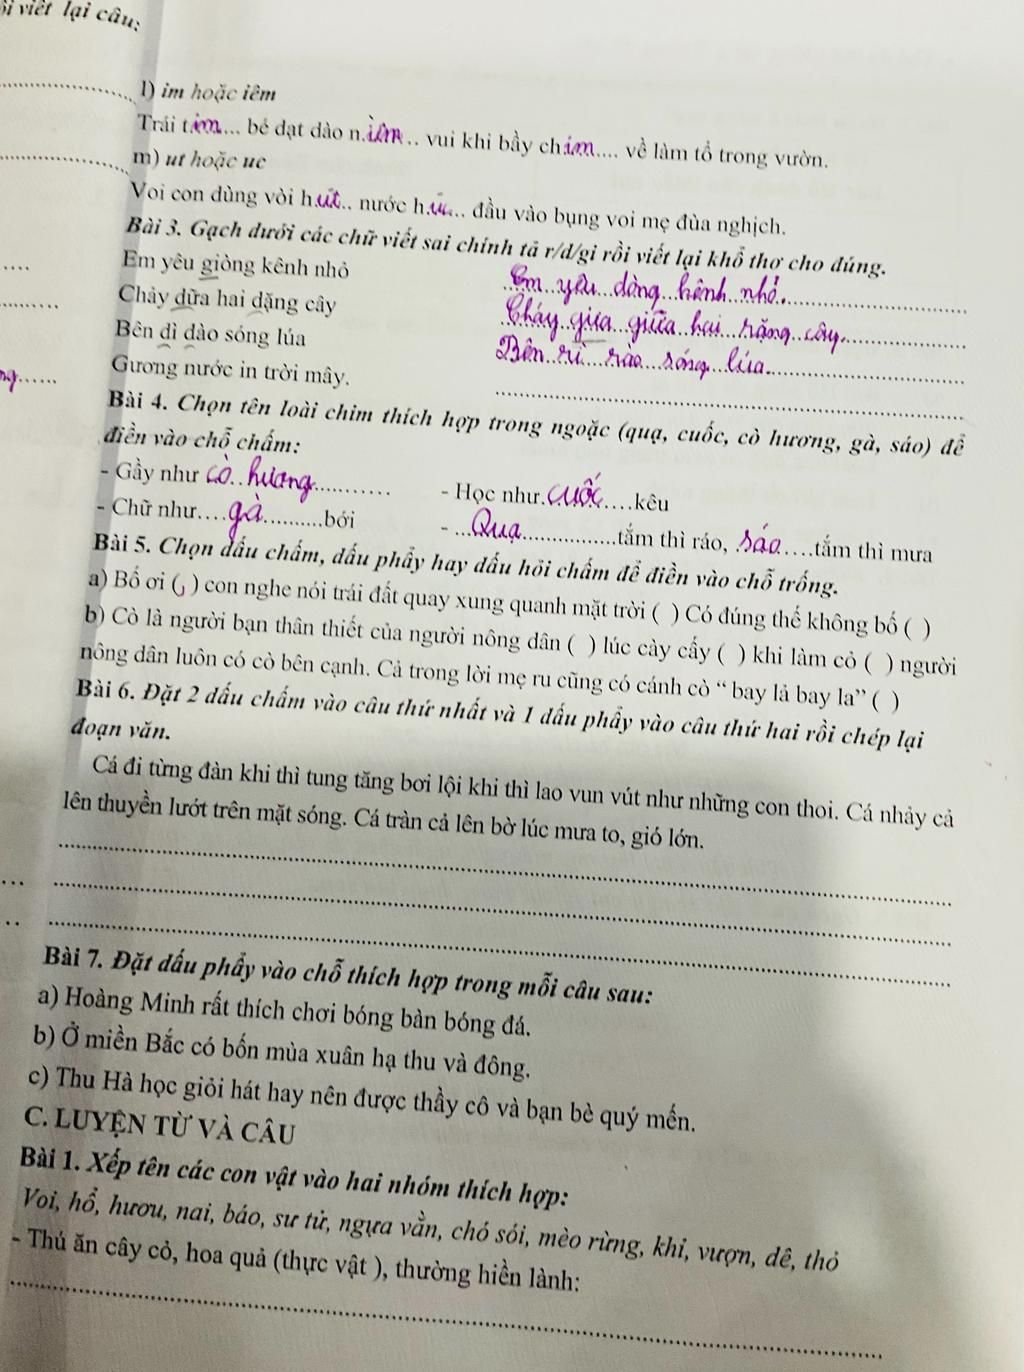 ồi viết lại câu:
l) im hoặc iêm
Trái tim... bé dạt dào n.iềm.. vui khi bầy chim.... về làm tổ trong vườn.
m) ut hoặc uc
Voi con dùng vòi hút.. nước h.úc... đầu vào bụng voi mẹ đùa nghịch.
Bài 3. Gạch dưới các chữ viết sai chính tả r/d/gi rồi viết lại khổ thơ cho đúng.
Em yêu giòng kênh nhỏ
Em yêu dòng kênh nhỏ.
Chảy dữa hai dặng cây
Chảy giưa giữa hai rặng cây.
Bên dì dào sóng lúa
Bên rì rào sóng lúa.
Gương nước in trời mây.
Bài 4. Chọn tên loài chim thích hợp trong ngoặc (quạ, cuốc, cò hương, gà, sáo) để
điền vào chỗ chấm:
- Gầy như cò hương............
- Học như.cuốc....kêu
- Chữ như....gà..........bới
- ...Quạ................tắm thì ráo, sáo....tắm thì mưa
Bài 5. Chọn dấu chấm, dấu phẩy hay dấu hỏi chấm để điền vào chỗ trống.
a) Bố ơi (, ) con nghe nói trái đất quay xung quanh mặt trời ( ) Có đúng thế không bố ( )
b) Cò là người bạn thân thiết của người nông dân ( ) lúc cày cấy ( ) khi làm cỏ ( ) người
nông dân luôn có cò bên cạnh. Cả trong lời mẹ ru cũng có cánh cò “ bay lả bay la” ( )
Bài 6. Đặt 2 dấu chấm vào câu thứ nhất và 1 dấu phẩy vào câu thứ hai rồi chép lại
đoạn văn.
Cá đi từng đàn khi thì tung tăng bơi lội khi thì lao vun vút như những con thoi. Cá nhảy cả
lên thuyền lướt trên mặt sóng. Cá tràn cả lên bờ lúc mưa to, gió lớn.
Bài 7. Đặt dấu phẩy vào chỗ thích hợp trong mỗi câu sau:
a) Hoàng Minh rất thích chơi bóng bàn bóng đá.
b) Ở miền Bắc có bốn mùa xuân hạ thu và đông.
c) Thu Hà học giỏi hát hay nên được thầy cô và bạn bè quý mến.
C. LUYỆN TỪ VÀ CÂU
Bài 1. Xếp tên các con vật vào hai nhóm thích hợp:
Voi, hổ, hươu, nai, báo, sư tử, ngựa vằn, chó sói, mèo rừng, khỉ, vượn, dê, thỏ
- Thú ăn cây cỏ, hoa quả (thực vật ), thường hiền lành: